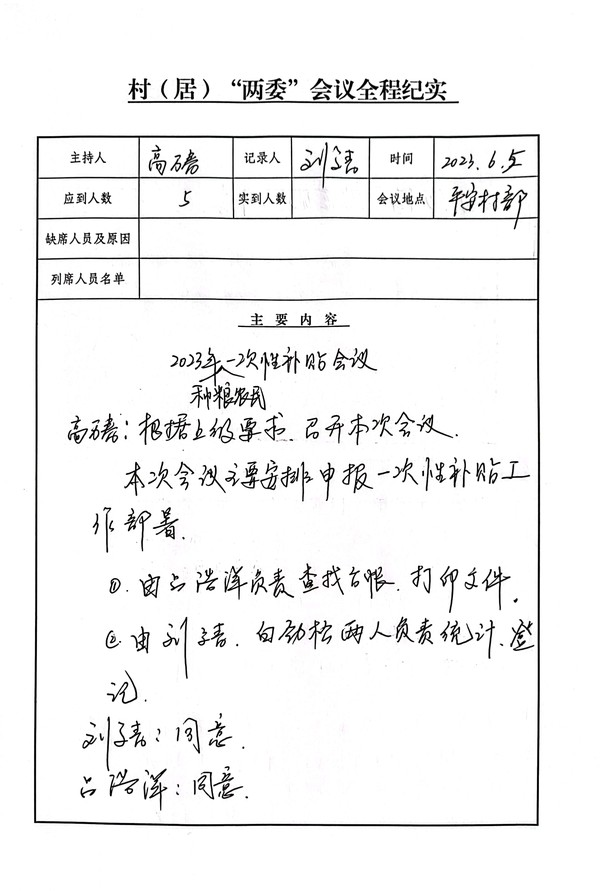 村（居）“两委”会议全程纪实
主持人 高 记录人 刘 时间 2023.6.5
应到人数 5 实到人数 会议地点 平安村部
缺席人员及原因
列席人员名单
主要内容
2023年一次性补贴会议
种粮农民
高：根据上级要求.召开本次会议.
本次会议主要安排申报一次性补贴工
作部署.
①.由吕浩洋负责查找台账.打印文件.
②.由刘、白劲松两人负责统计、登
记.
刘：同意.
吕浩洋：同意.